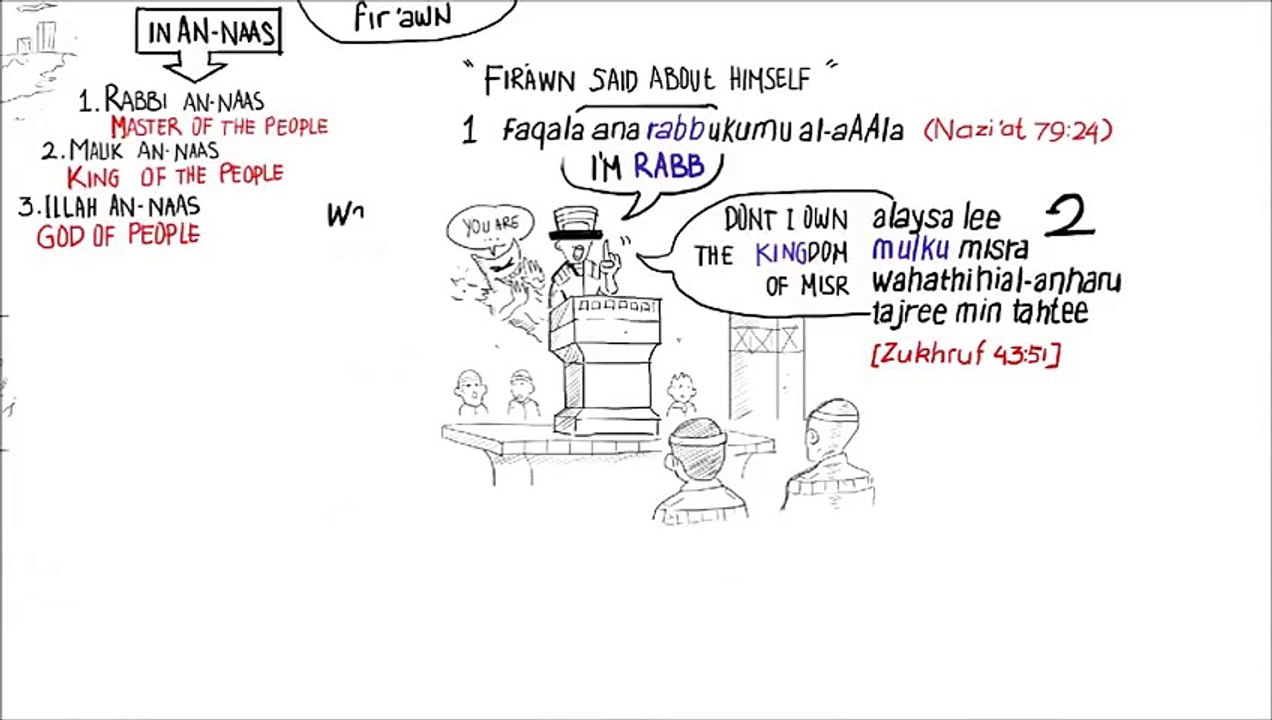 fir'awn
IN AN-NAAS
1. RABBI AN-NAAS
MASTER OF THE PEOPLE
2. MALIK AN-NAAS
KING OF THE PEOPLE
3. ILLAH AN-NAAS
GOD OF PEOPLE
"FIR'AWN SAID ABOUT HIMSELF"
1 faqala ana rabbukumu al-aAAla (Nazi'at 79:24)
I'M RABB
YOU ARE
...
DONT I OWN
THE KINGDOM
OF MISR
alaysa lee 2
mulku misra
wahathihial-anharu
tajree min tahtee
[Zukhruf 43:51]